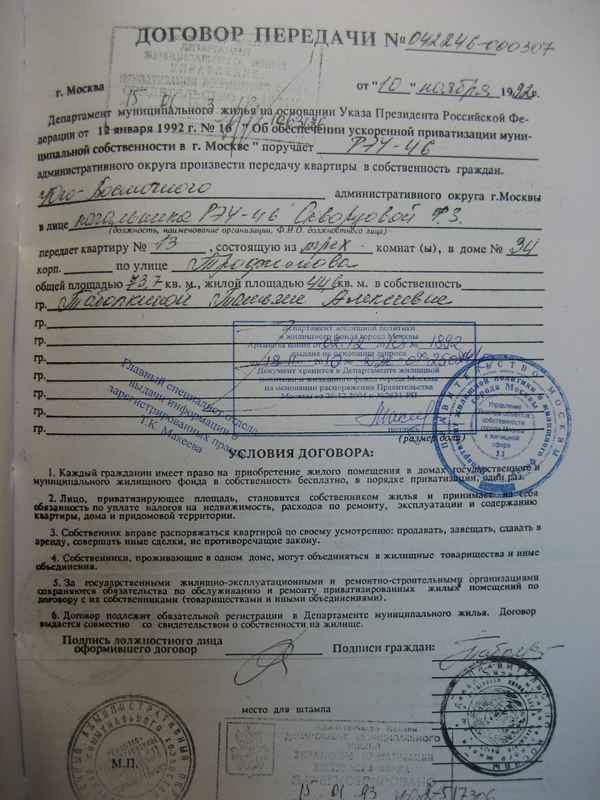 ДОГОВОР ПЕРЕДАЧИ № 042246-000307
г. Москва от "10" ноября 1992г.
Департамент муниципального жилья на основании Указа Президента Российской Фе-
дерации от 12 января 1992 г. № 16 " Об обеспечении ускоренной приватизации муни-
ципальной собственности в г. Москве " поручает РЭУ-46
административного округа произвести передачу квартиры в собственность граждан.
Юго-Восточного административного округа г.Москвы
в лице начальника РЭУ-46 Скворцовой Ф.З.
(должность, наименование организации, Ф.И.О. должностного лица)
передает квартиру № 13, состоящую из трех комнат (ы), в доме № 34
корп. по улице Трофимова
общей площадью 73,7 кв. м., жилой площадью 44,6 кв. м. в собственность
гр. Таборкиной Татьяне Алексеевне
гр.
гр.
гр.
гр.
гр.
гр.
гр.
Департамент жилищной политики
и жилищного фонда города Москвы
выдана на основании запроса
Документ хранится в Департаменте жилищной
политики и жилищного фонда города Москвы
на основании распоряжения Правительства
Главный специалист отдела
выдачи информации о
зарегистрированных правах
Т.К. Макеева
(размер доли)
УСЛОВИЯ ДОГОВОРА:
1. Каждый гражданин имеет право на приобретение жилого помещения в домах государственного и
муниципального жилищного фонда в собственность бесплатно, в порядке приватизации, один раз.
2. Лицо, приватизирующее площадь, становится собственником жилья и принимает на себя
обязанность по уплате налогов на недвижимость, расходов по ремонту, эксплуатации и содержанию
квартиры, дома и придомовой территории.
3. Собственник вправе распоряжаться квартирой по своему усмотрению: продавать, завещать, сдавать в
аренду, совершать иные сделки, не противоречащие закону.
4. Собственники, проживающие в одном доме, могут объединяться в жилищные товарищества и иные
объединения.
5. За государственными жилищно-эксплуатационными и ремонтно-строительными организациями
сохраняются обязательства по обслуживанию и ремонту приватизированных жилых помещений по
договору с их собственниками (товариществами и иными объединениями).
6. Договор подлежит обязательной регистрации в Департаменте муниципального жилья. Договор
выдается совместно со свидетельством о собственности на жилище.
Подпись должностного лица
оформившего договор Подписи граждан:
место для штампа
М.П.
15 01 93